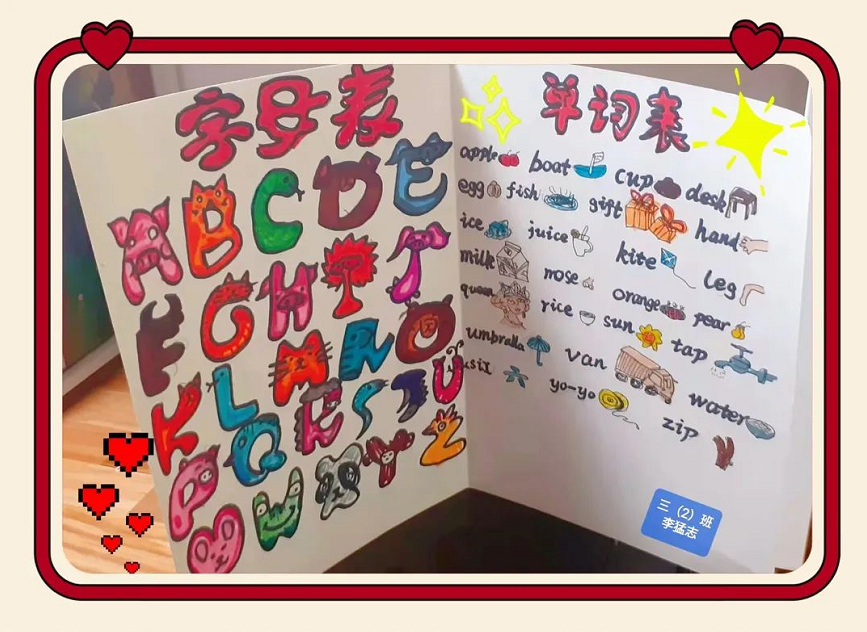 字母表
A B C D E
F G H I J
K L M N O
P Q R S T U
V W X Y Z
单词表
apple boat cup desk
egg fish gift hand
ice juice kite leg
milk nose orange pear
queen rice sun tap
umbrella van water
xsix yo-yo zip
三（2）班
李猛志